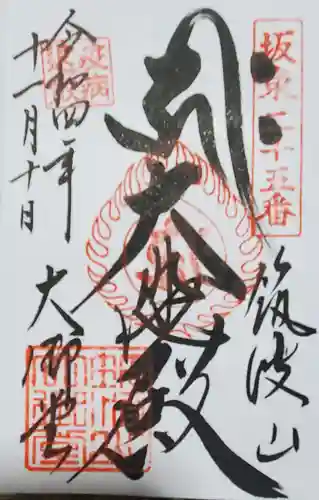 坂東二十五番
筑波山
大悲殿
大御堂
令和四年
十一月十日